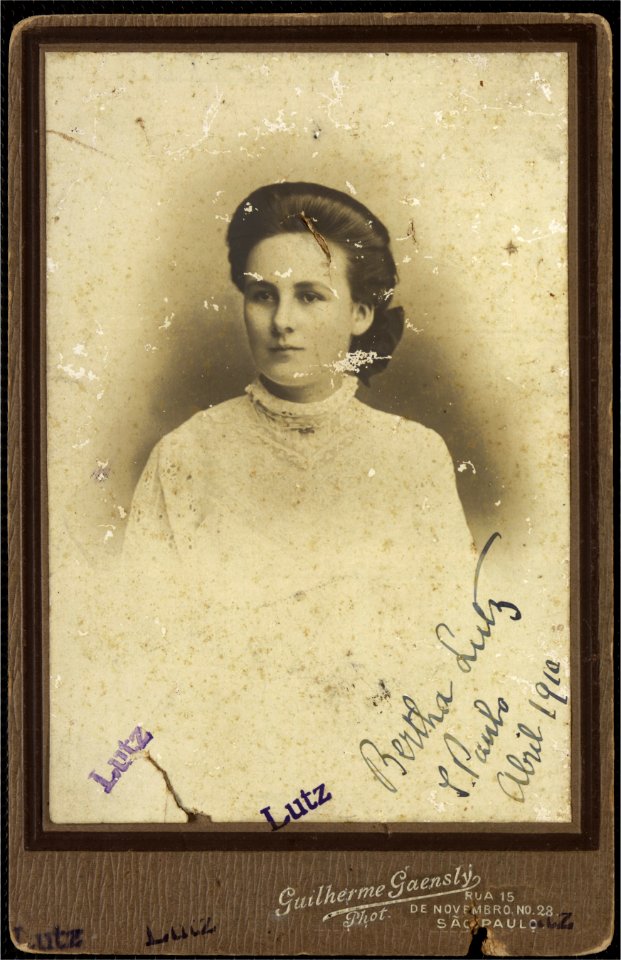 Bertha Lutz
S. Paulo
Abril 1910
Lutz
Lutz
Guilherme Gaensly
Phot.
RUA 15
DE NOVEMBRO. NO. 28.
SÃO PAULO
Lutz
Lutz
tz